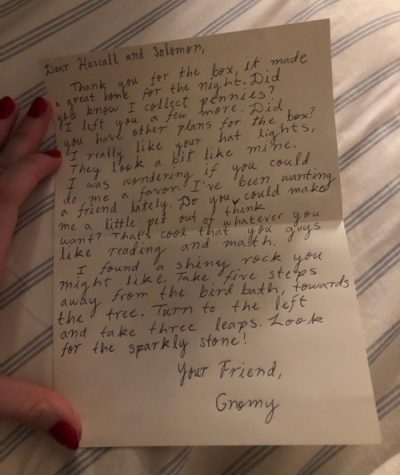 Dear Hascall and Solomon,
Thank you for the box, it made
a great home for the night. Did
you know I collect pennies?
I left you a few more. Did
you have other plans for the box?
I really like your hat lights,
They look a bit like mine.
I was wondering if you could
do me a favor. I've been wanting
a friend lately. Do you think could make
me a little pet out of whatever you
want? That's cool that you guys
like reading and math.
I found a shiny rock you
might like. Take five steps
away from the bird bath, towards
the tree. Turn to the left
and take three leaps. Look
for the sparkly stone!
Your Friend,
Gnomy